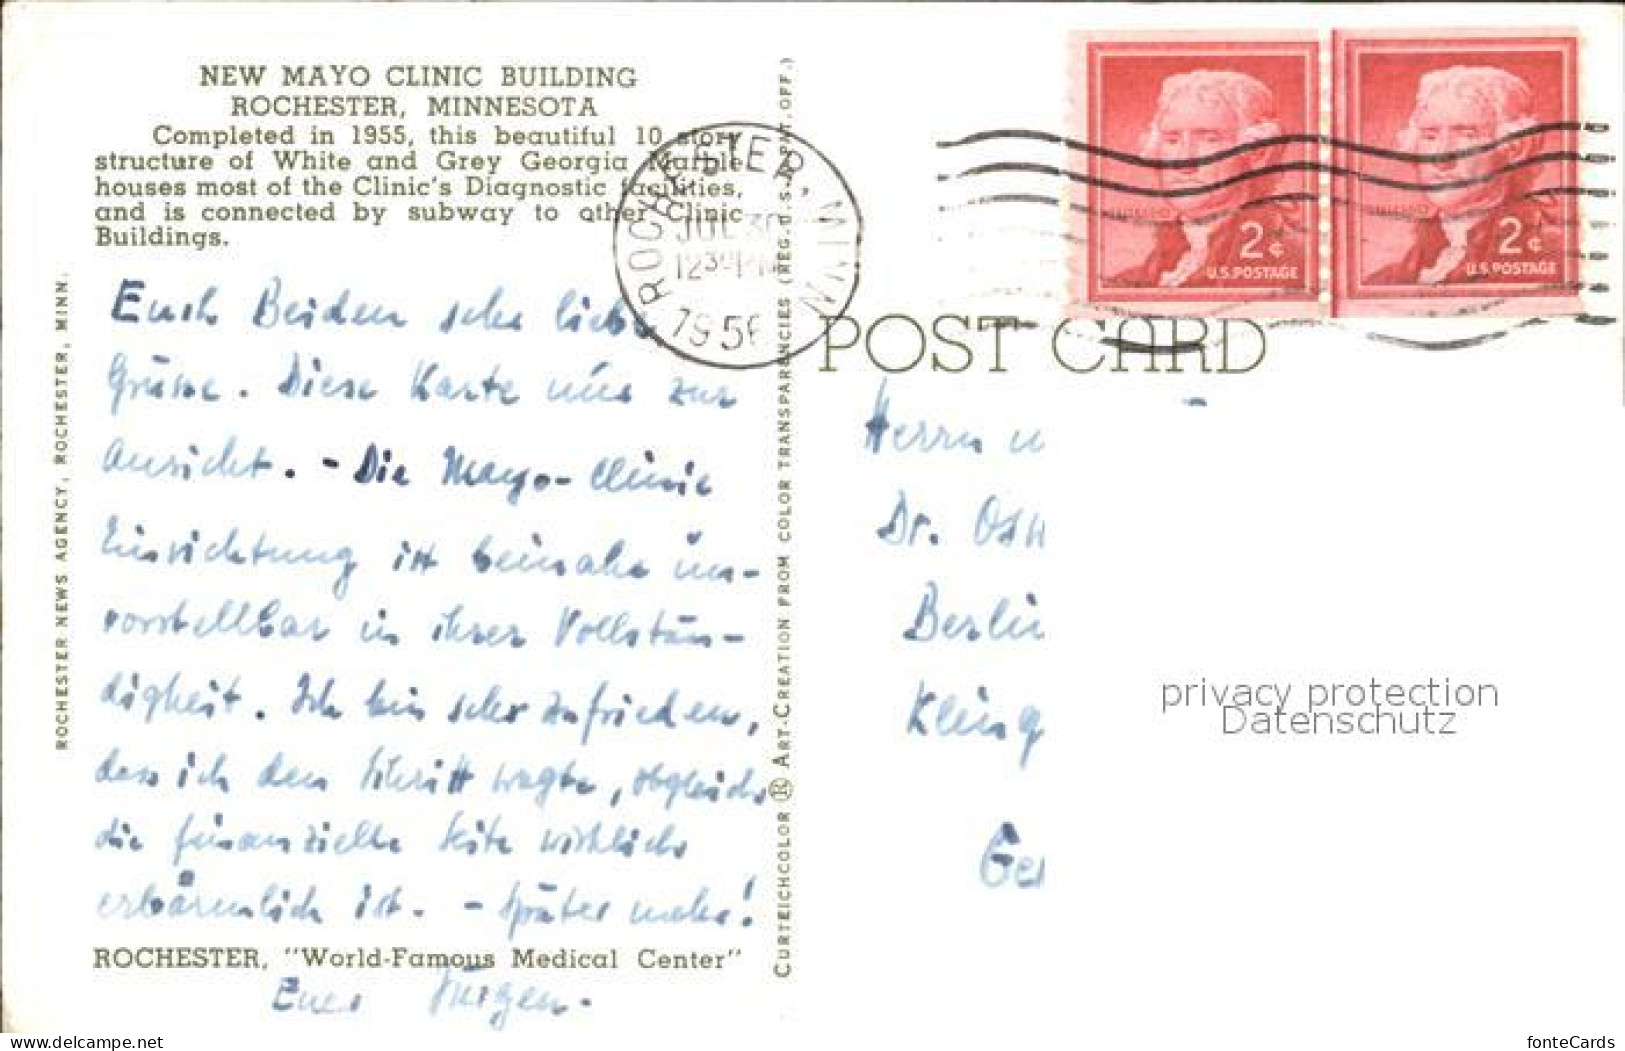 NEW MAYO CLINIC BUILDING
ROCHESTER, MINNESOTA
Completed in 1955, this beautiful 10 story
structure of White and Grey Georgia Marble
houses most of the Clinic's Diagnostic facilities,
and is connected by subway to other Clinic
Buildings.
ROCHESTER NEWS AGENCY, ROCHESTER, MINN.
Euch Beiden sehr liebe
Grüsse. Diese Karte nur zur
Ansicht. - Die Mayo-Clinic
Einrichtung ist beinahe un-
vorstellbar in ihrer Vollstän-
digkeit. Ich bin sehr zufrieden,
dass ich den Schritt wagte, obgleich
die finanzielle Seite wirklich
erbärmlich ist. - Später mehr!
ROCHESTER, "World-Famous Medical Center"
Euer Jürgen.
CURTEICHCOLOR ® ART-CREATION FROM COLOR TRANSPARENCIES (REG. U.S. PAT. OFF.)
ROCHESTER, MINN
JUL 30
12 30 PM
1956
2¢
U.S. POSTAGE
2¢
U.S. POSTAGE
POST CARD
Herrn u
Dr. Osw
Berlin
Kling
Ger
privacy protection
Datenschutz
www.delcampe.net
fonteCards